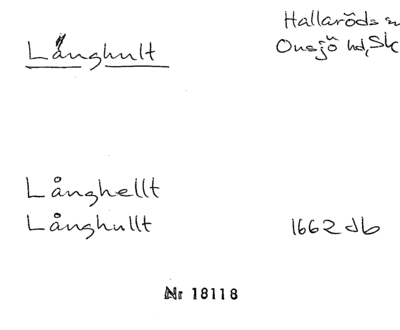 Hallaröds sn
Långhult
Onsjö hd, Sk
Långhellt
Långhullt 1662 db
Nr 18118